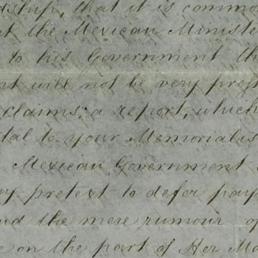 that it is commo
t the Mexican Ministe
to his Government th
nt will not be very
claims; a report, which
tal to your Memorialis
Mexican Government
y pretext to defer pay
nd the mere rumour of
e on the part of Her Ma